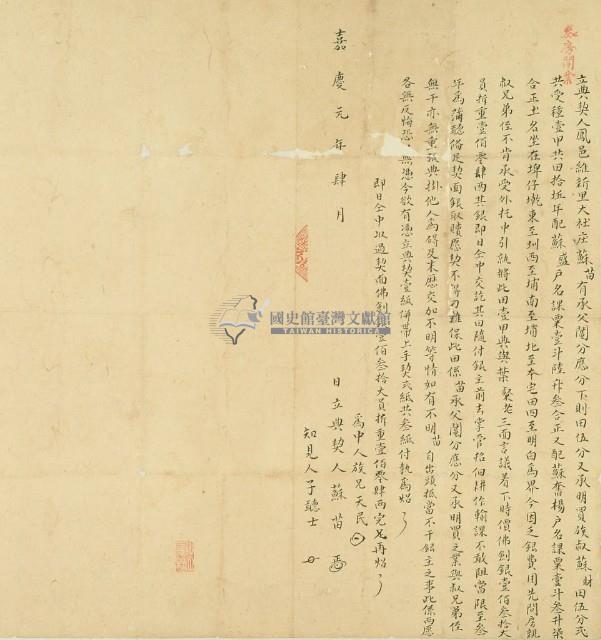 立典契人鳳邑維新里大社庄蘇苗有承父鬮分應分下則田伍分又承明買族叔蘇財田伍分弍
共受種壹甲共田拾坵年配蘇盛戶名課粟壹斗陸升叁合正又配蘇奮揚戶名課粟壹斗叁升柒
合正土名坐在埤仔墘東至圳西至埔南至埔北至本宅田四至明白為界今因乏銀費用先問房親
叔兄弟侄不肯承受外托中引就將此田壹甲典與葉繫老三面言議着下時價佛劍銀壹佰叁拾大
員折重壹佰零肆兩其銀即日仝中交訖其田隨付銀主前去掌管招佃耕作輸課不敢阻當限至叁
年為滿聽俻足契面銀取贖愿契不得刁難保此田係苗承父鬮分應分又承明買之業與叔兄弟侄
無干亦無重張典掛他人為碍及來歷交加不明等情如有不明苗自出頭抵當不干銀主之事此係両愿
各無反悔恐無憑今欲有憑立典契壹紙併帶上手契弍紙共叁紙付執為炤
即日仝中收過契面佛劍壹佰叁拾大員折重壹佰零肆両完足再炤
為中人族兄天民
嘉慶元年肆月 日立典契人蘇苗
知見人子聽士
國史館臺灣文獻館
TAIWAN HISTORICA